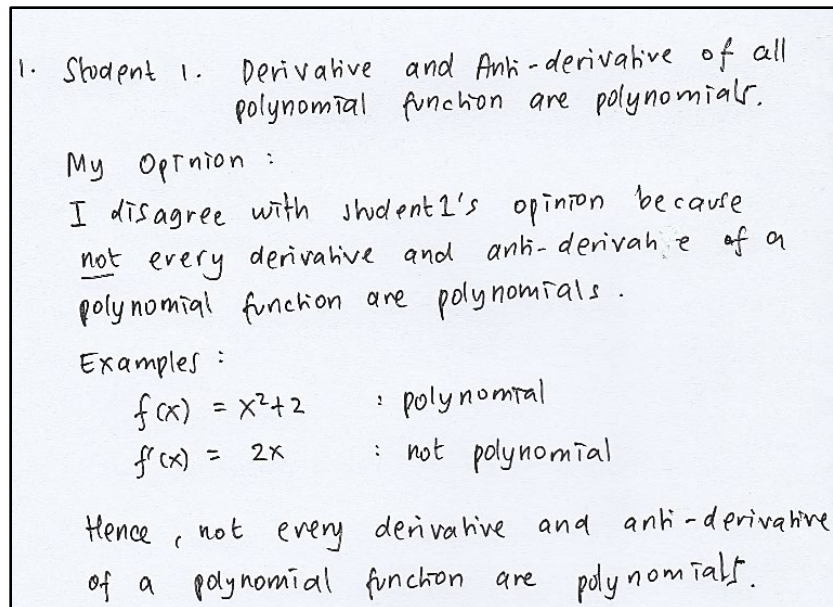 1. Student 1. Derivative and Anti-derivative of all
polynomial function are polynomials.
My Opinion :
I disagree with student1's opinion because
not every derivative and anti-derivative of a
polynomial function are polynomials.
Examples :
f(x) = x²+2 : polynomial
f'(x) = 2x : not polynomial
Hence, not every derivative and anti-derivative
of a polynomial function are polynomials.